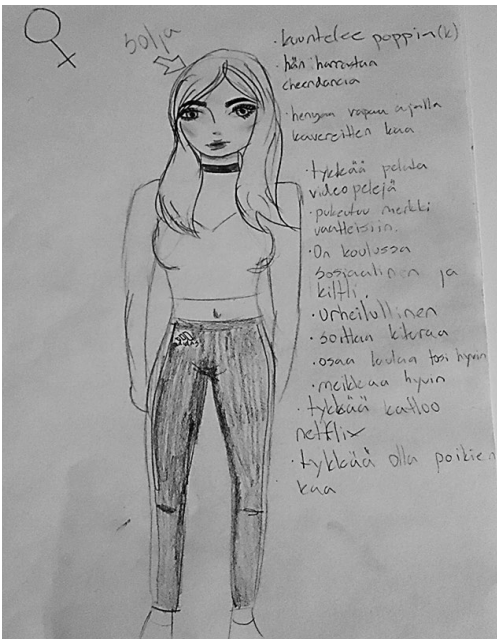 Solja
·kuuntelee poppin(k)
·hän harrastaa
cheerdancea
·hengaa vapaa ajalla
kavereitten kaa
·tykkää pelata
videopelejä
·pukeutuu merkki
vaatteisiin.
·On koulussa
sosiaalinen ja
kiltti.
·Urheilullinen
·soittaa kitaraa
·osaa laulaa tosi hyvin
·meikkaa hyvin
·tykkää kattoo
netflix
·tykkää olla poikien
kaa